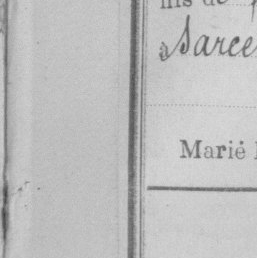 fils de
à Sarce
Marié